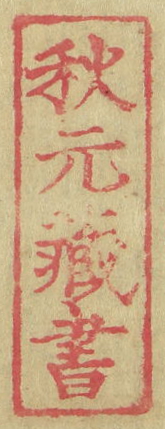 秋元藏書